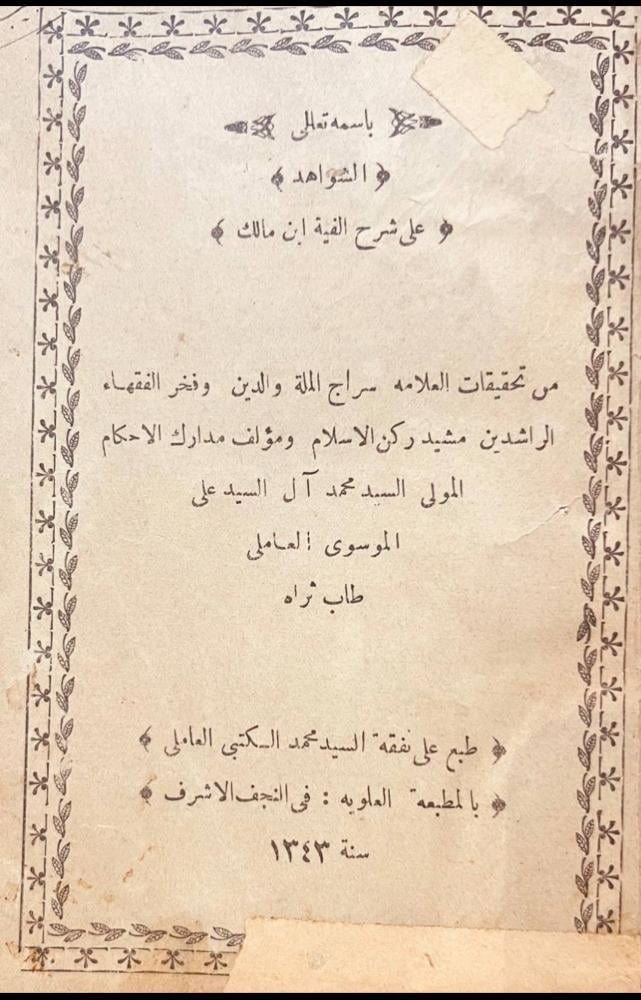 باسمه تعالى
﴿ الشواهد ﴾
﴿ على شرح الفية ابن مالك ﴾
من تحقيقات العلامه سراج الملة والدين وفخر الفقهاء
الراشدين مشيد ركن الاسلام ومؤلف مدارك الاحكام
المولى السيد محمد آل السيد على
الموسوى العاملى
طاب ثراه
﴿ طبع على نفقة السيد محمد الكتبي العاملى ﴾
﴿ بالمطبعة العلويه : فى النجف الاشرف ﴾
سنة ١٣٤٣